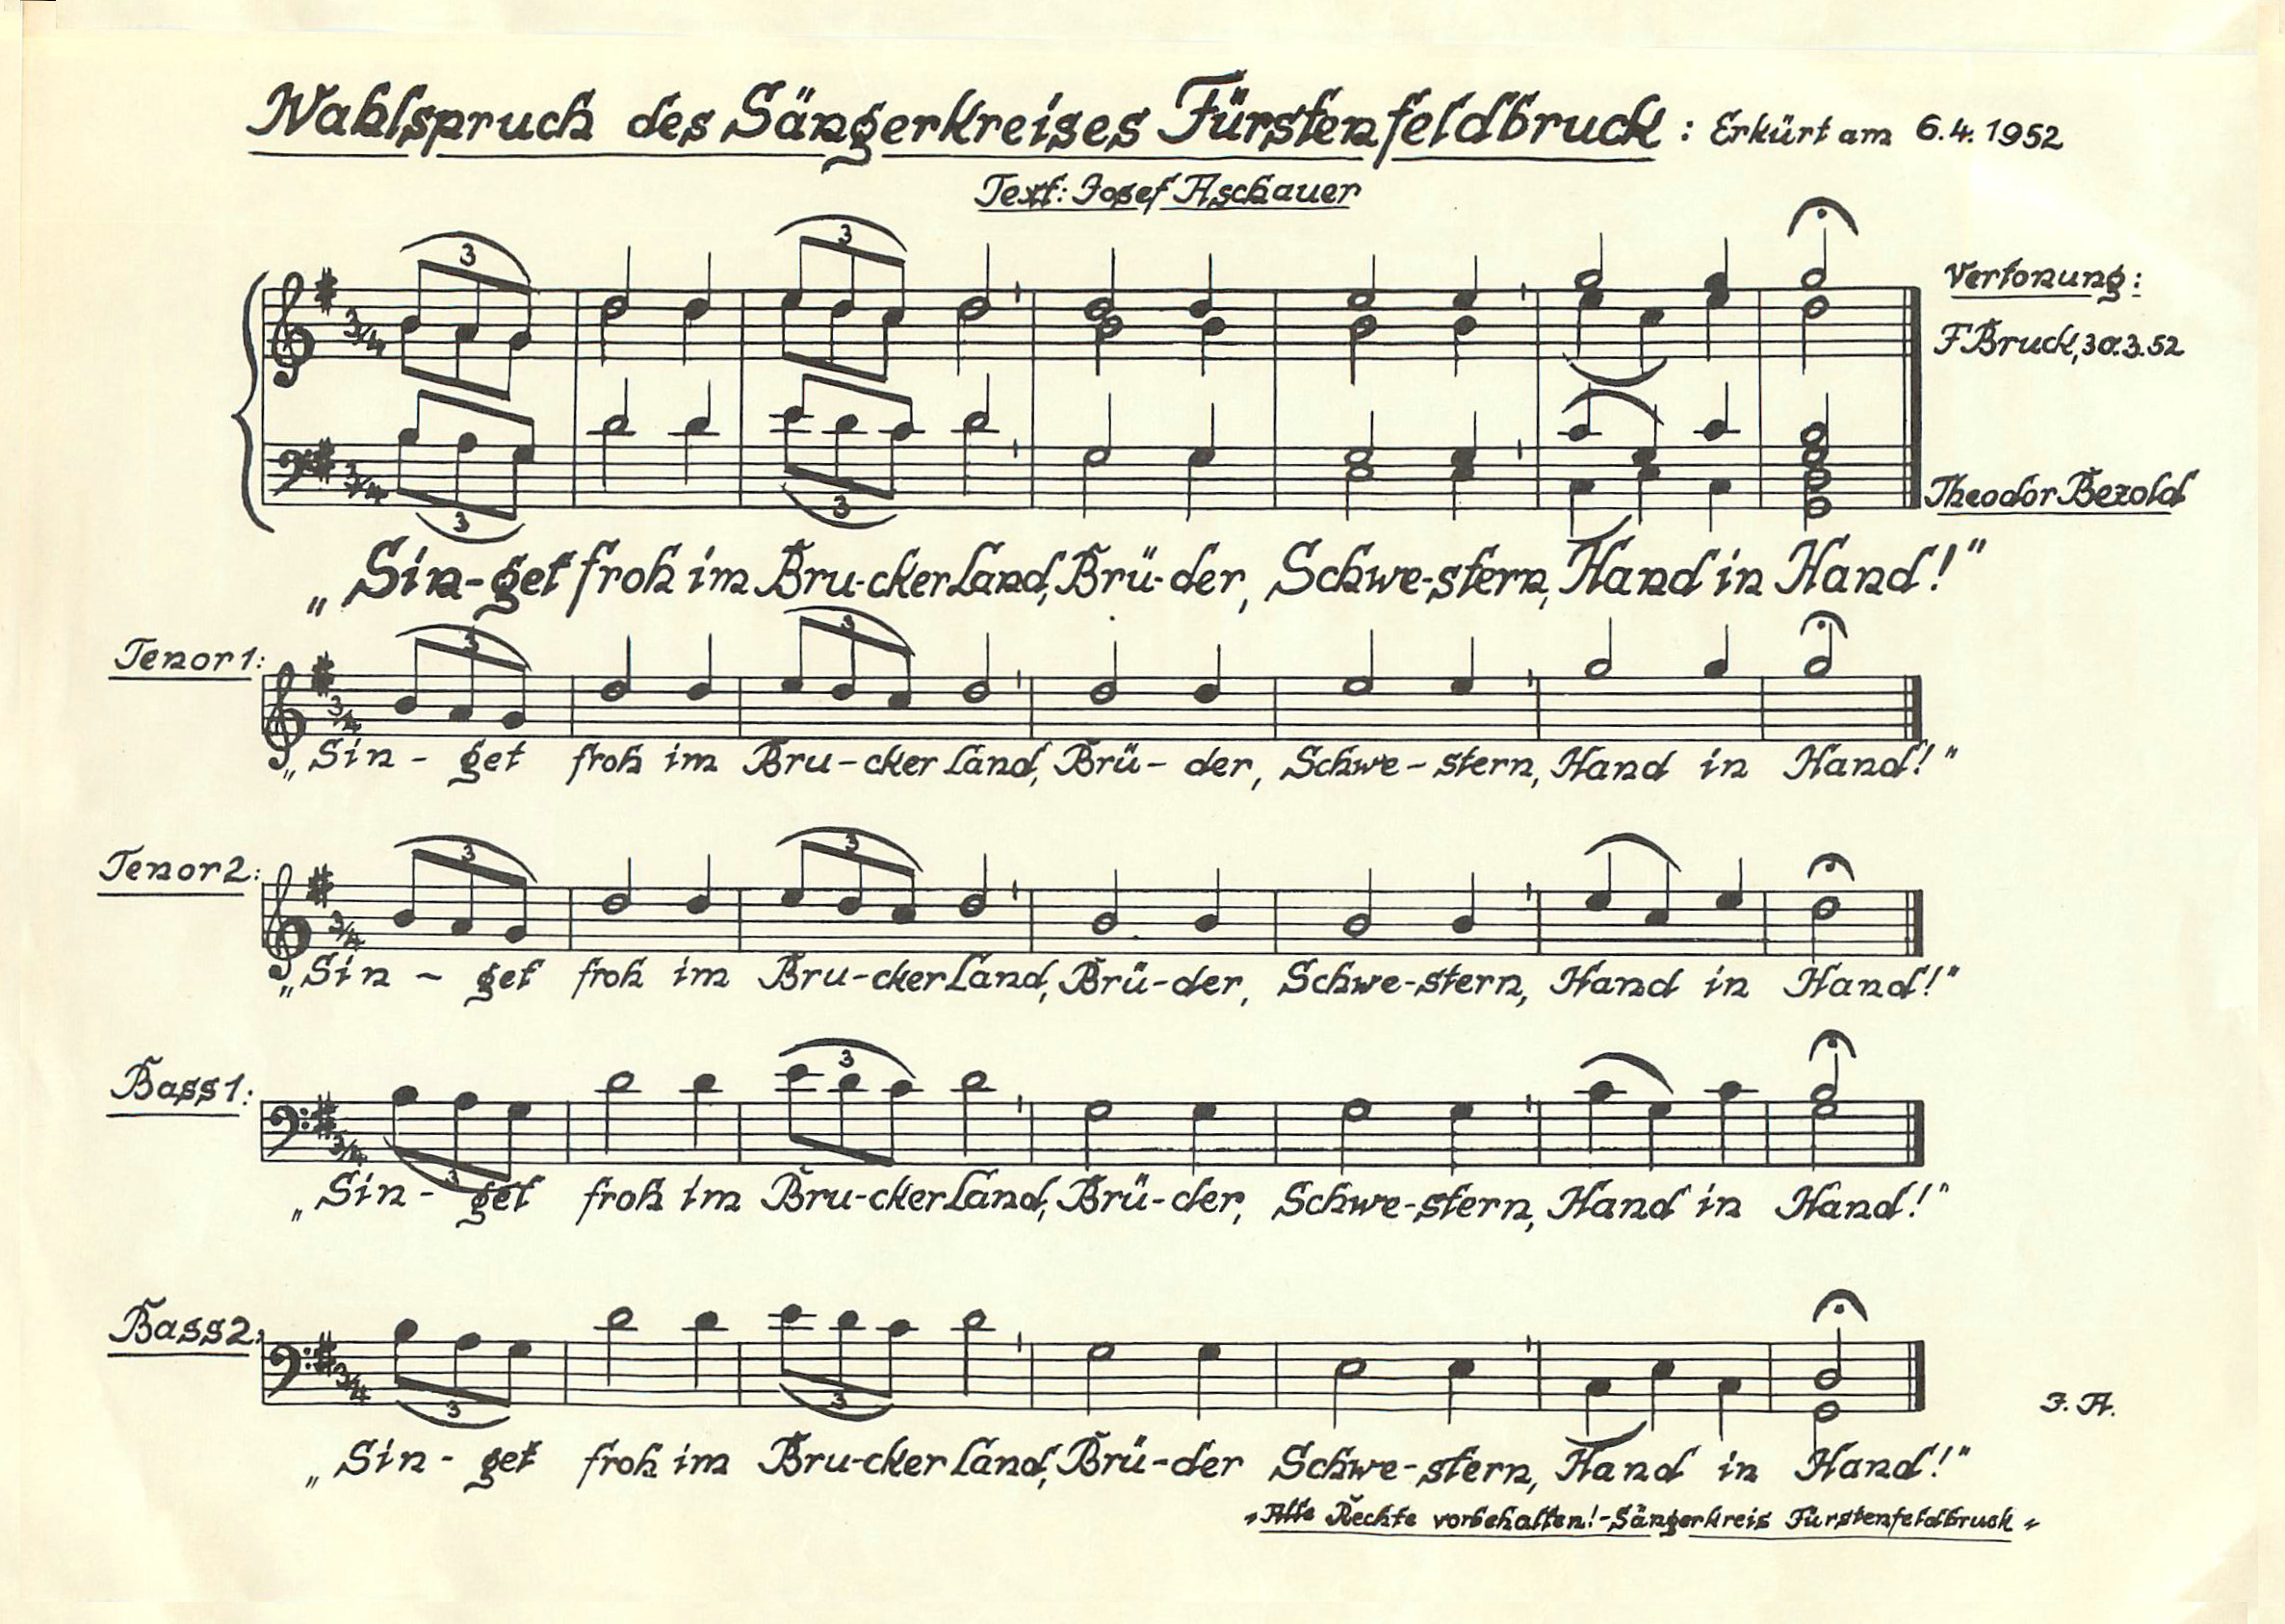 Wahlspruch des Sängerkreises Fürstenfeldbruck : Erkürt am 6.4.1952
Text: Josef Aschauer
Vertonung:
FBruck, 30.3.52
Theodor Bezold
3 3
3/4
3/4
3 3
„Sin-get froh im Bru-cker Land, Brü-der, Schwe-stern, Hand in Hand!"
Tenor 1:
3 3
3/4
„Sin - get froh im Bru-cker Land, Brü - der, Schwe-stern, Hand in Hand!"
Tenor 2:
3 3
3/4
„Sin - get froh im Bru-cker Land, Brü-der, Schwe-stern, Hand in Hand!"
Bass 1:
3
3/4
3
„Sin - get froh im Bru-cker Land, Brü-der, Schwe-stern, Hand in Hand!"
Bass 2:
3/4
3 3
J. A.
„Sin - get froh im Bru-cker Land, Brü-der Schwe-stern, Hand in Hand!"
"Alle Rechte vorbehalten!-Sängerkreis Fürstenfeldbruck"